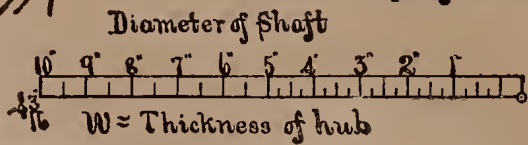 Diameter of Shaft
10" 9" 8" 7" 6" 5" 4" 3" 2" 1"
W = Thickness of hub